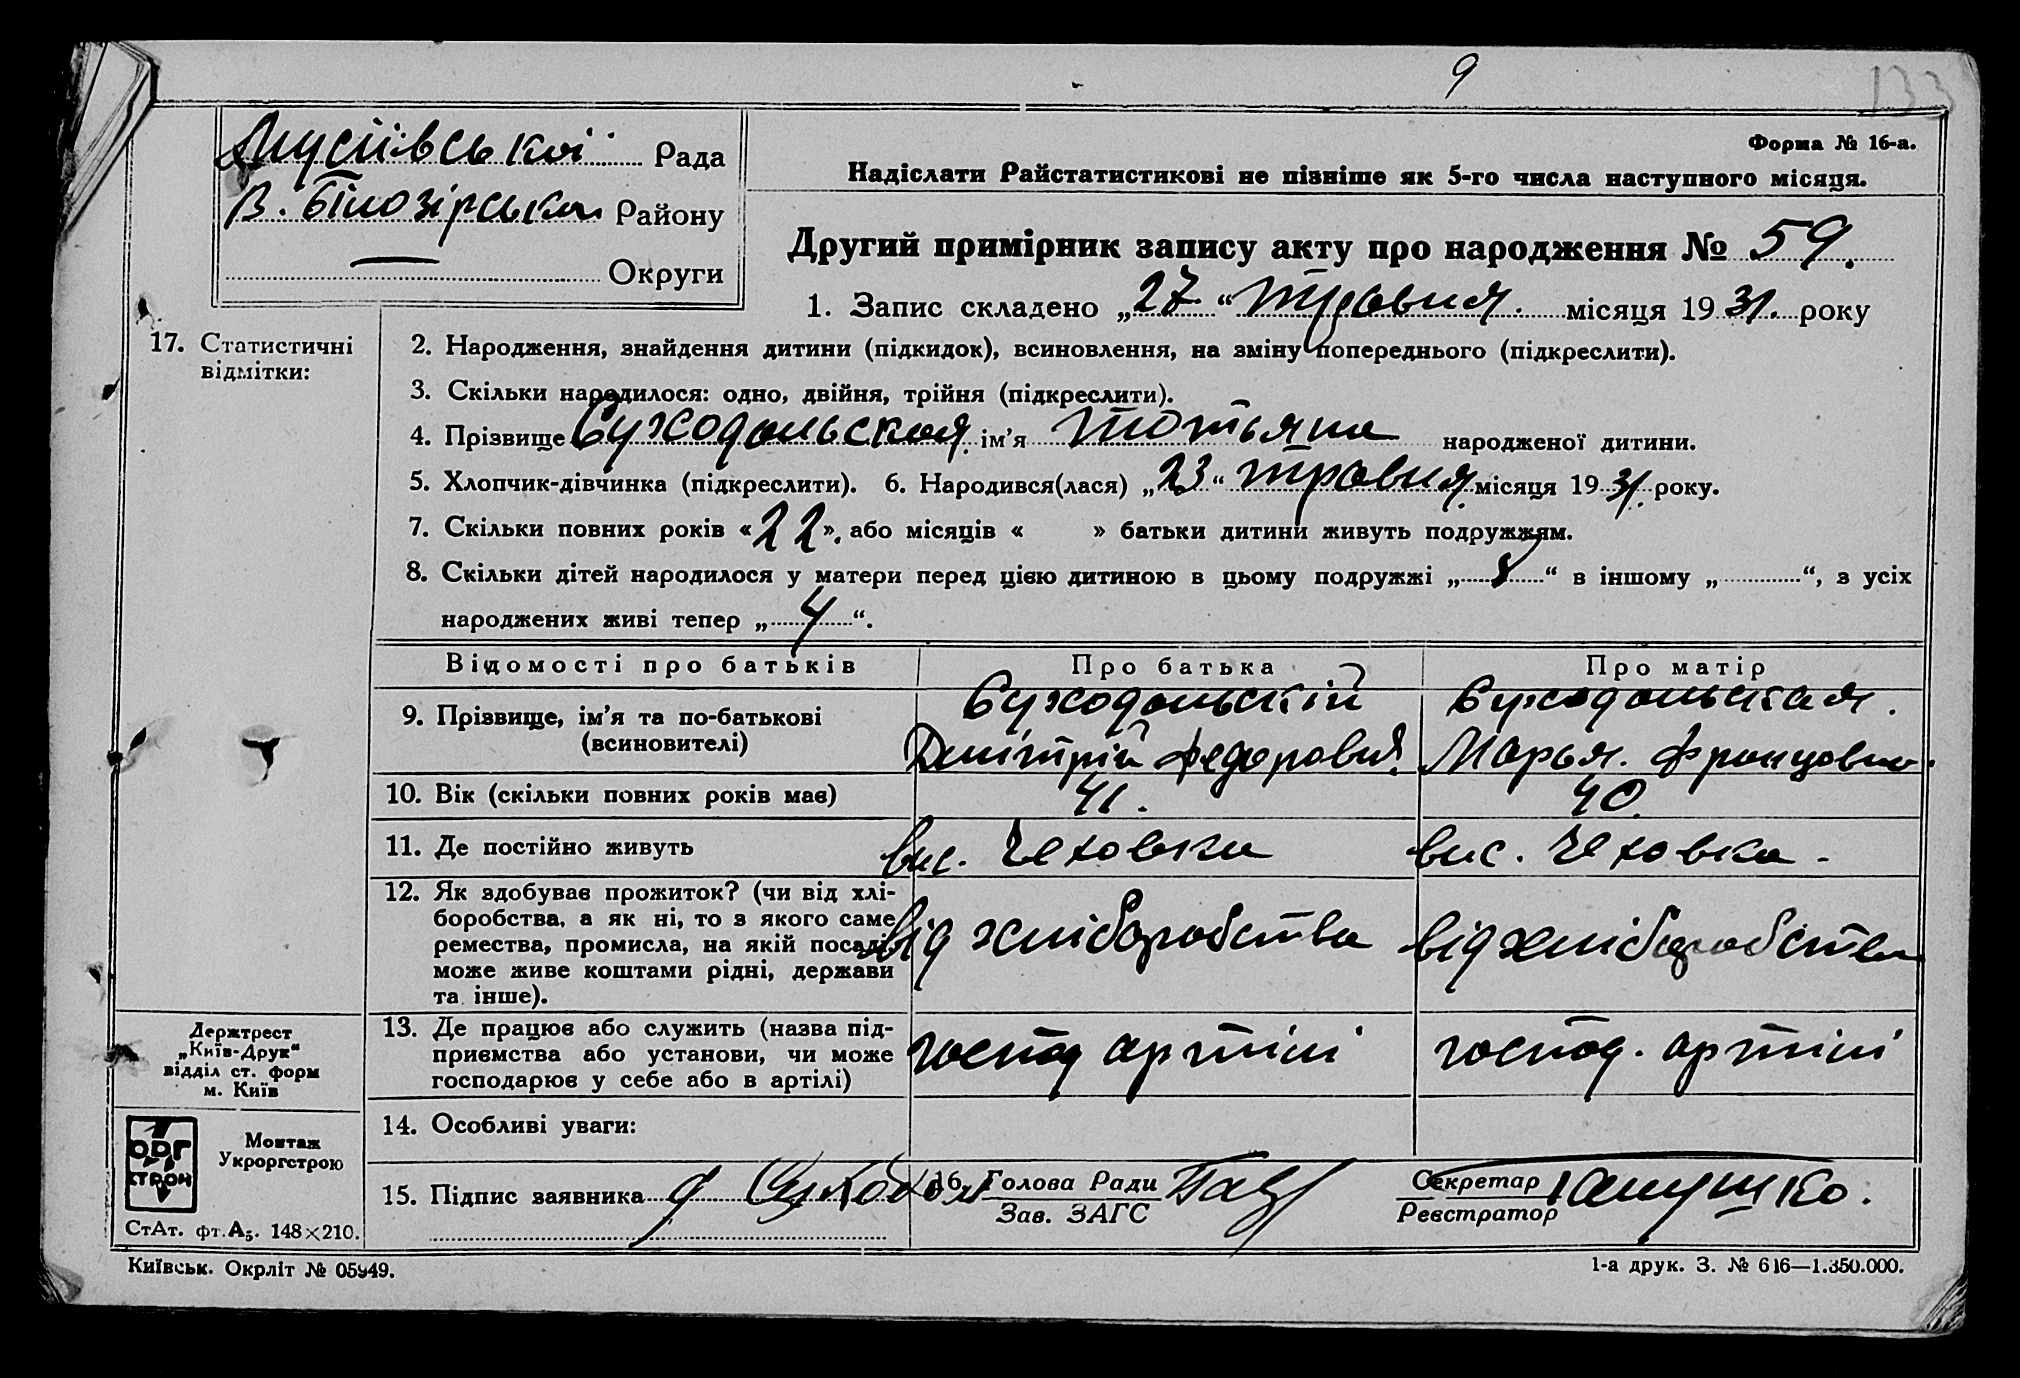 9
133
Мусіївської Рада
В. Білозірської Району
Округи
Форма № 16-а.
Надіслати Райстатистикові не пізніше як 5-го числа наступного місяця.
Другий примірник запису акту про народження № 59.
1. Запис складено „27“ Травня. місяця 1931. року
17. Статистичні
відмітки:
2. Народження, знайдення дитини (підкидок), всиновлення, на зміну попереднього (підкреслити).
3. Скільки народилося: одно, двійня, трійня (підкреслити).
4. Прізвище Суходольская ім’я Татьяна народженої дитини.
5. Хлопчик-дівчинка (підкреслити). 6. Народився(лася) „23“ Травня місяця 1931. року.
7. Скільки повних років «22», або місяців « » батьки дитини живуть подружжям.
8. Скільки дітей народилося у матери перед цією дитиною в цьому подружжі „8“ в іншому „ “, з усіх
народжених живі тепер „4“.
Відомості про батьків Про батька Про матір
9. Прізвище, ім’я та по-батькові
(всиновителі)
Суходольскій
Дмітрій Федоров
Суходольская.
Марья. Францовна.
10. Вік (скільки повних років має) 41. 40.
11. Де постійно живуть вис. Чеховка вис. Чеховка.
12. Як здобуває прожиток? (чи від хлі-
боробства, а як ні, то з якого саме
ремества, промисла, на якій посаді,
може живе коштами рідні, держави
та інше).
від хліборобства від хліборобства
13. Де працює або служить (назва під-
приємства або установи, чи може
господарює у себе або в артілі)
господ артілі господ. артілі
14. Особливі уваги:
15. Підпис заявника
16. Голова Ради
Зав. ЗАГС
Секретар
Реєстратор
Держтрест
„Київ-Друк“
відділ ст. форм
м. Київ
ОРГ
СТРОЙ
Монтаж
Укроргстрою
СтАт. фт. А5. 148×210.
Київськ. Окрліт № 05949.
1-а друк. З. № 616—1.350.000.